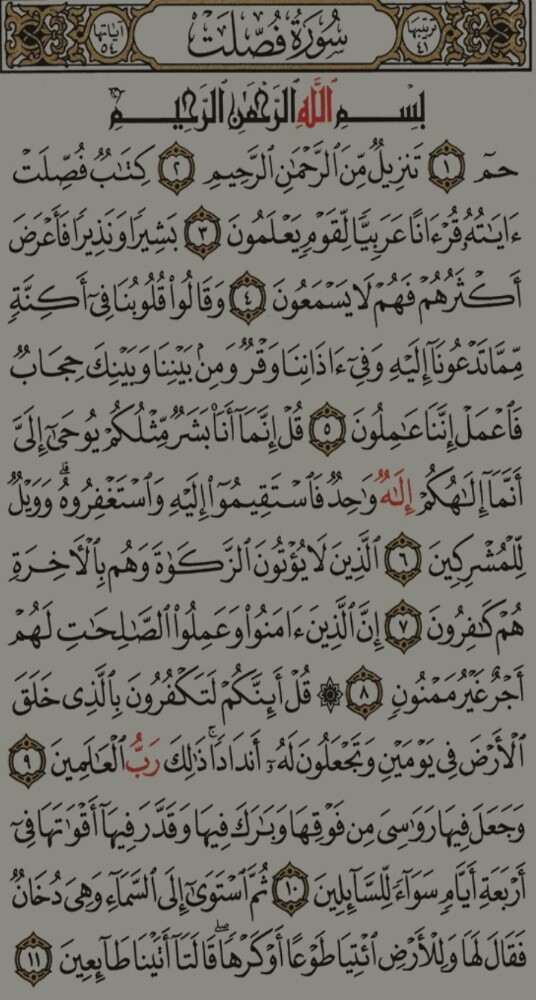 ترتيبها ٤١ سُورَةُ فُصِّلَتْ آياتها ٥٤
بِسْمِ ٱللَّهِ ٱلرَّحْمَٰنِ ٱلرَّحِيمِ
حمٓ ١ تَنزِيلٌ مِّنَ ٱلرَّحْمَٰنِ ٱلرَّحِيمِ ٢ كِتَٰبٌ فُصِّلَتْ
ءَايَٰتُهُۥ قُرْءَانًا عَرَبِيًّا لِّقَوْمٍ يَعْلَمُونَ ٣ بَشِيرًا وَنَذِيرًا فَأَعْرَضَ
أَكْثَرُهُمْ فَهُمْ لَا يَسْمَعُونَ ٤ وَقَالُوا۟ قُلُوبُنَا فِىٓ أَكِنَّةٍ
مِّمَّا تَدْعُونَآ إِلَيْهِ وَفِىٓ ءَاذَانِنَا وَقْرٌ وَمِنۢ بَيْنِنَا وَبَيْنِكَ حِجَابٌ
فَٱعْمَلْ إِنَّنَا عَٰمِلُونَ ٥ قُلْ إِنَّمَآ أَنَا۠ بَشَرٌ مِّثْلُكُمْ يُوحَىٰٓ إِلَىَّ
أَنَّمَآ إِلَٰهُكُمْ إِلَٰهٌ وَٰحِدٌ فَٱسْتَقِيمُوٓا۟ إِلَيْهِ وَٱسْتَغْفِرُوهُ ۗ وَوَيْلٌ
لِّلْمُشْرِكِينَ ٦ ٱلَّذِينَ لَا يُؤْتُونَ ٱلزَّكَوٰةَ وَهُم بِٱلْأَخِرَةِ
هُمْ كَٰفِرُونَ ٧ إِنَّ ٱلَّذِينَ ءَامَنُوا۟ وَعَمِلُوا۟ ٱلصَّٰلِحَٰتِ لَهُمْ
أَجْرٌ غَيْرُ مَمْنُونٍ ٨ ۞ قُلْ أَئِنَّكُمْ لَتَكْفُرُونَ بِٱلَّذِى خَلَقَ
ٱلْأَرْضَ فِى يَوْمَيْنِ وَتَجْعَلُونَ لَهُۥٓ أَندَادًا ۚ ذَٰلِكَ رَبُّ ٱلْعَٰلَمِينَ ٩
وَجَعَلَ فِيهَا رَوَٰسِىَ مِن فَوْقِهَا وَبَٰرَكَ فِيهَا وَقَدَّرَ فِيهَآ أَقْوَٰتَهَا فِىٓ
أَرْبَعَةِ أَيَّامٍ سَوَآءً لِّلسَّآئِلِينَ ١٠ ثُمَّ ٱسْتَوَىٰٓ إِلَى ٱلسَّمَآءِ وَهِىَ دُخَانٌ
فَقَالَ لَهَا وَلِلْأَرْضِ ٱئْتِيَا طَوْعًا أَوْ كَرْهًا ۖ قَالَتَآ أَتَيْنَا طَآئِعِينَ ١١